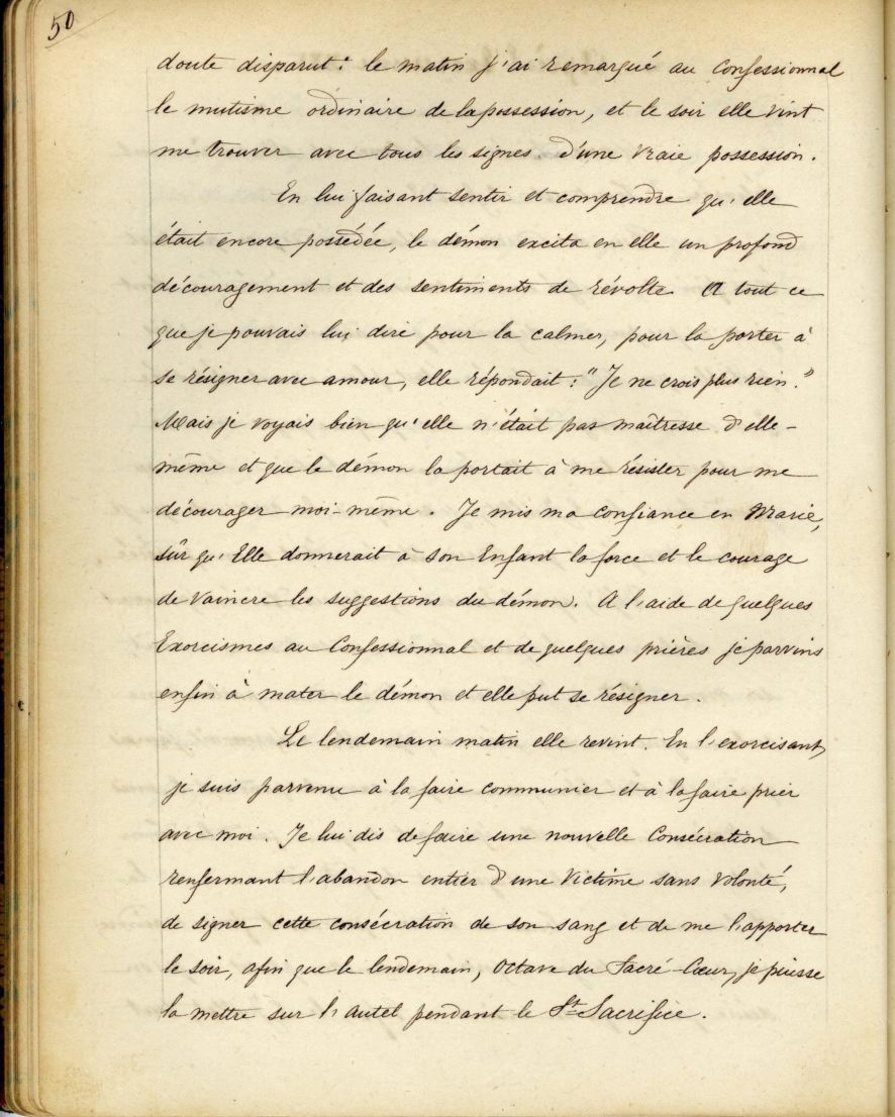 50
doute disparut : le matin j'ai remarqué au Confessionnal
le mutisme ordinaire de la possession, et le soir elle vint
me trouver avec tous les signes d'une vraie possession.
En lui faisant sentir et comprendre qu'elle
était encore possédée, le démon excita en elle un profond
découragement et des sentiments de révolte A tout ce
que je pouvais lui dire pour la calmer, pour la porter à
se résigner avec amour, elle répondait : "Je ne crois plus rien."
Mais je voyais bien qu'elle n'était pas maîtresse d'elle-
même et que le démon la portait à me résister pour me
décourager moi-même. Je mis ma confiance en Marie,
sûr qu'Elle donnerait à son Enfant la force et le courage
de vaincre les suggestions du démon. A l'aide de quelques
Exorcismes au Confessionnal et de quelques prières je parvins
enfin à mater le démon et elle put se résigner.
Le lendemain matin elle revint. En l'exorcisant,
je suis parvenu à la faire communier et à la faire prier
avec moi. Je lui dis de faire une nouvelle Consécration
renfermant l'abandon entier d'une Victime sans volonté,
de signer cette consécration de son sang et de me l'apporter
le soir, afin que le lendemain, Octave du Sacré-Cœur, je puisse
la mettre sur l'autel pendant le St Sacrifice.